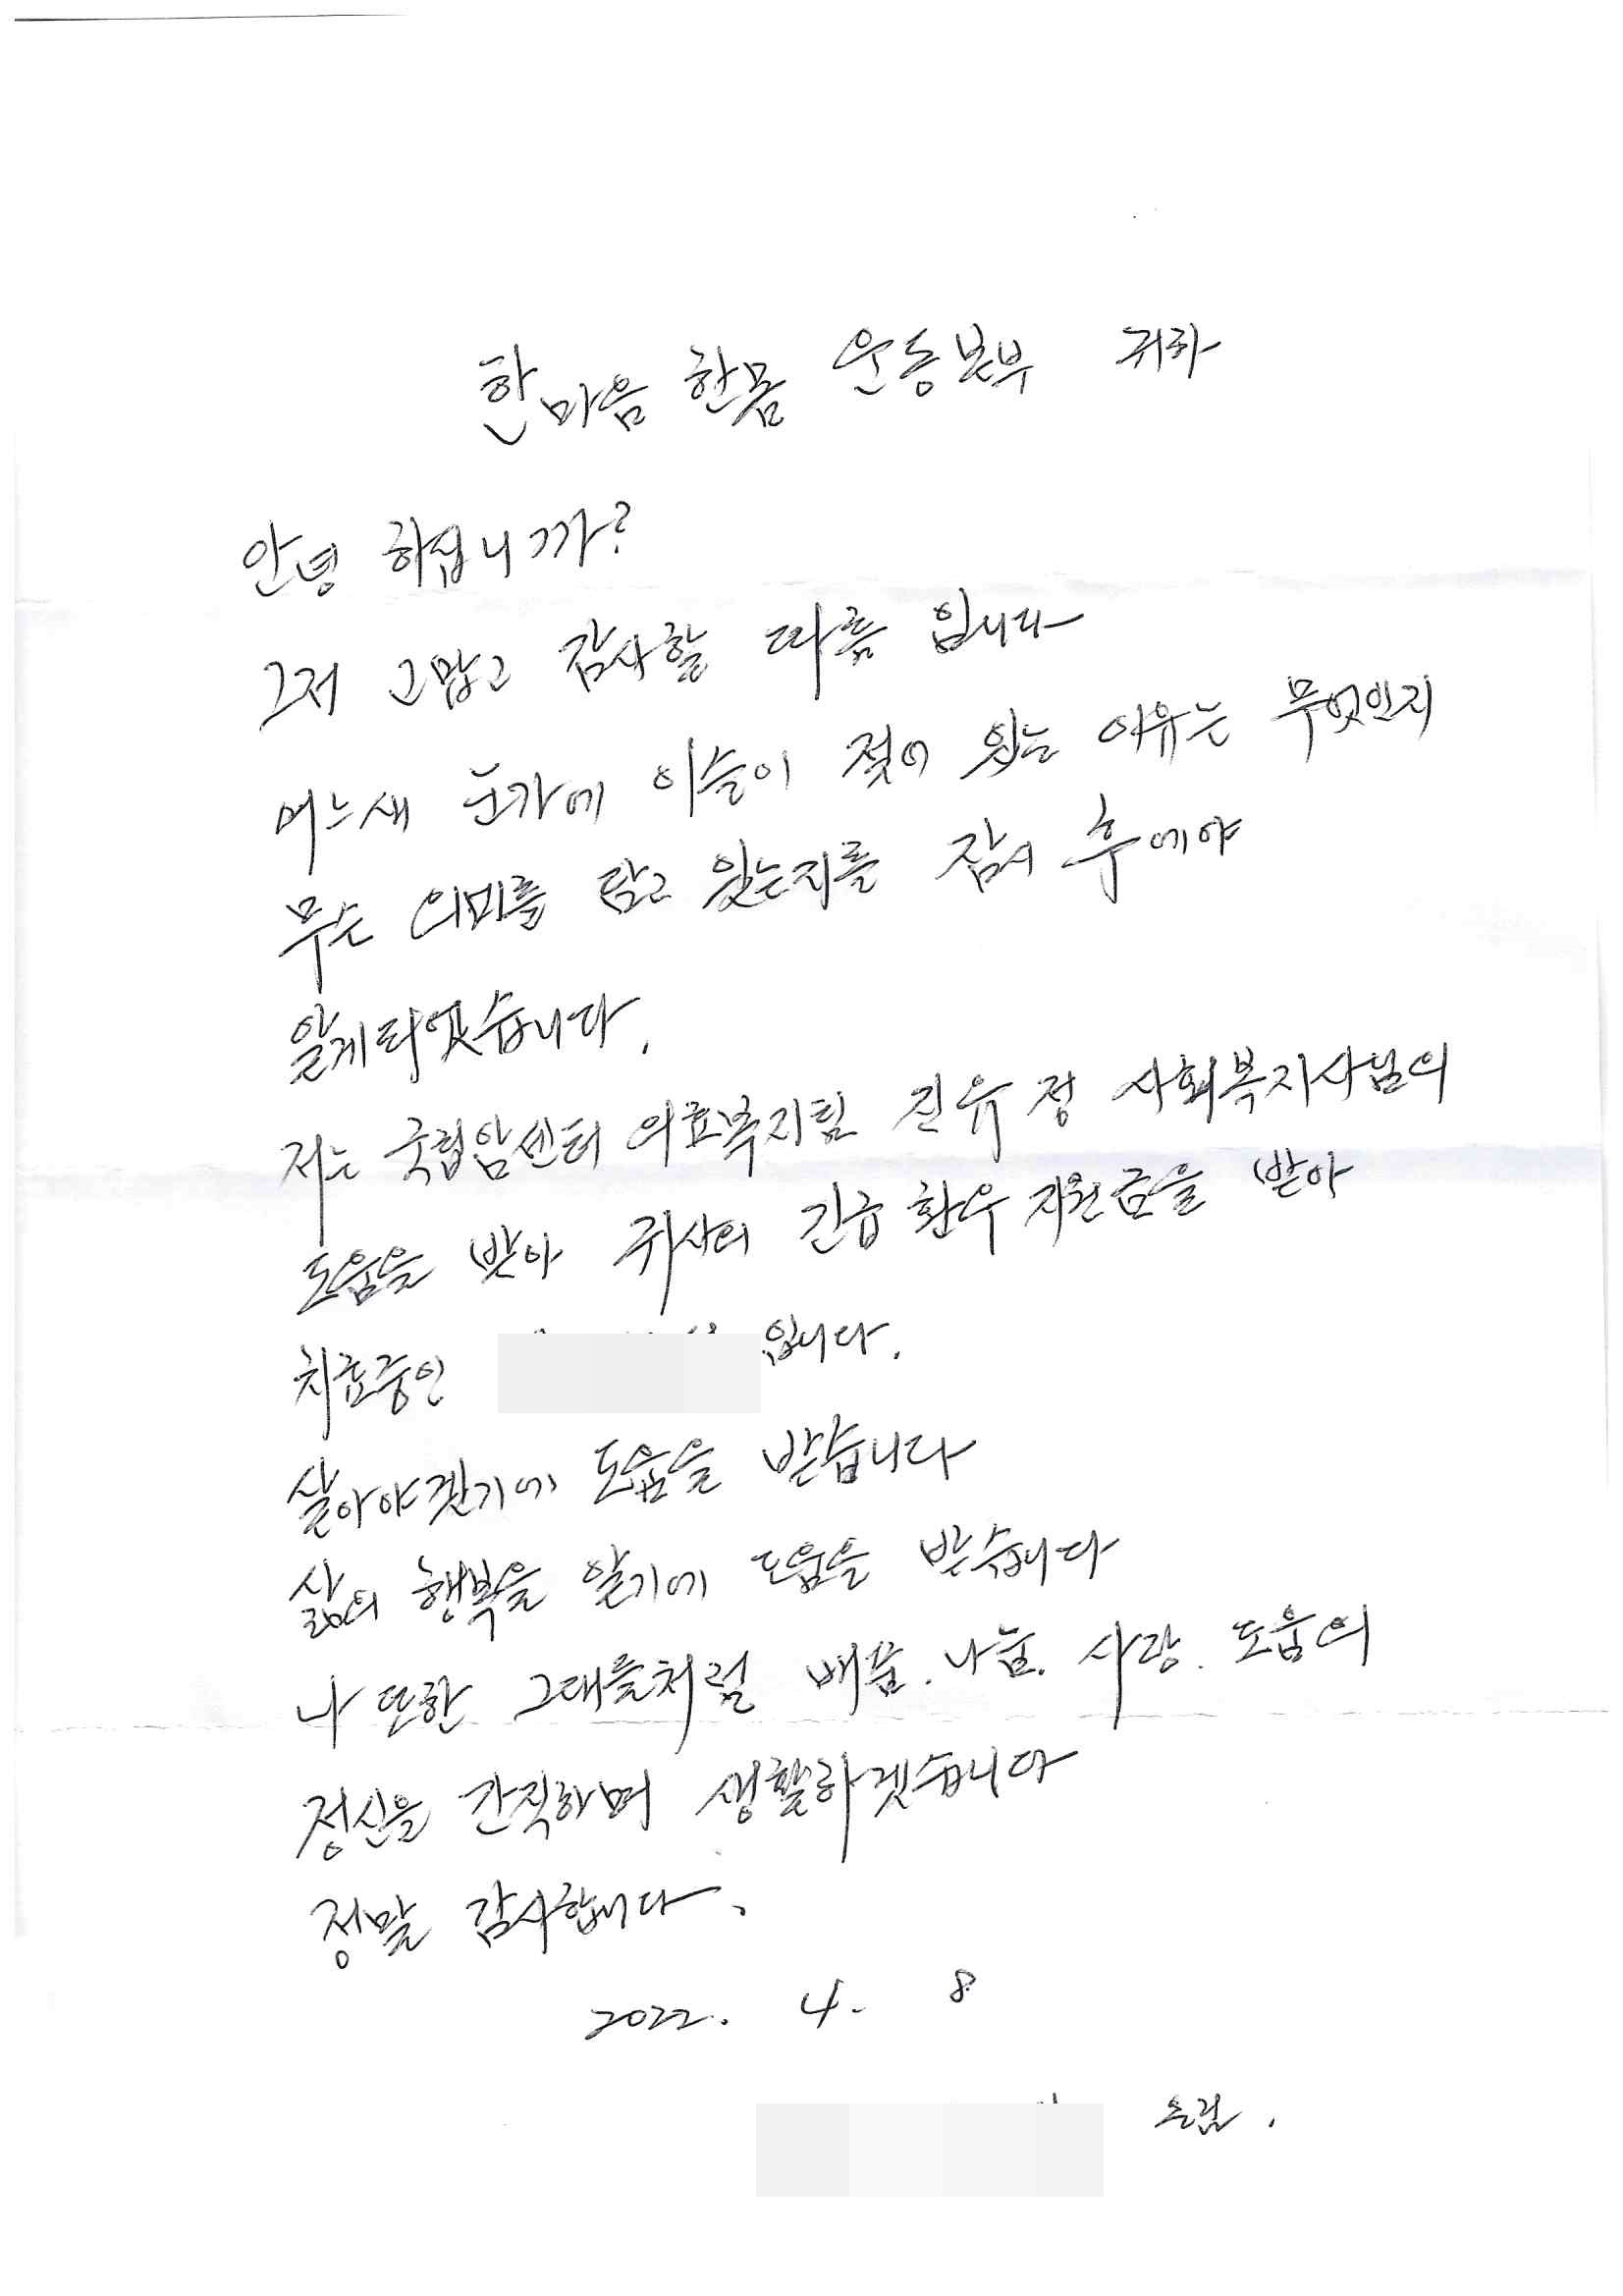 한마음 한몸 운동본부 귀하
안녕 하십니까?
그저 고맙고 감사할 따름 입니다
어느새 눈가에 이슬이 젖어 있는 이유는 무엇인지
무슨 의미를 담고 있는지를 잠시 후에야
알게되었습니다.
저는 국립암센터 의료복지팀 진유정 사회복지사님의
도움을 받아 귀사의 긴급 환우 지원금을 받아
치료중인 입니다.
살아야겠기에 도움을 받습니다
삶의 행복을 알기에 도움을 받습니다
나 또한 그대들처럼 베품. 나눔. 사랑. 도움의
정신을 간직하며 생활하겠습니다
정말 감사합니다.
2022. 4. 8
드림.